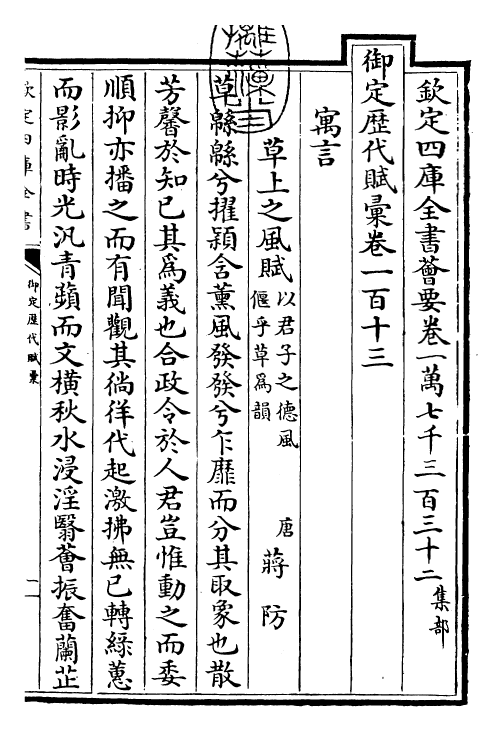 欽定四庫全書薈要卷一萬七千三百三十二 集部
御定歷代賦彙卷一百十三
寓言
草上之風賦 以君子之德風偃乎草為韻 唐 蔣防
草緜緜兮擢穎含薰風發發兮乍靡而分其取象也散
芳馨於知已其為義也合政令於人君豈惟動之而委
順抑亦播之而有聞觀其徜徉代起激拂無已轉綠蕙
而影亂時光汎青蘋而文橫秋水浸淫翳薈振奮蘭芷
欽定四庫全書
御定歷代賦彙
一